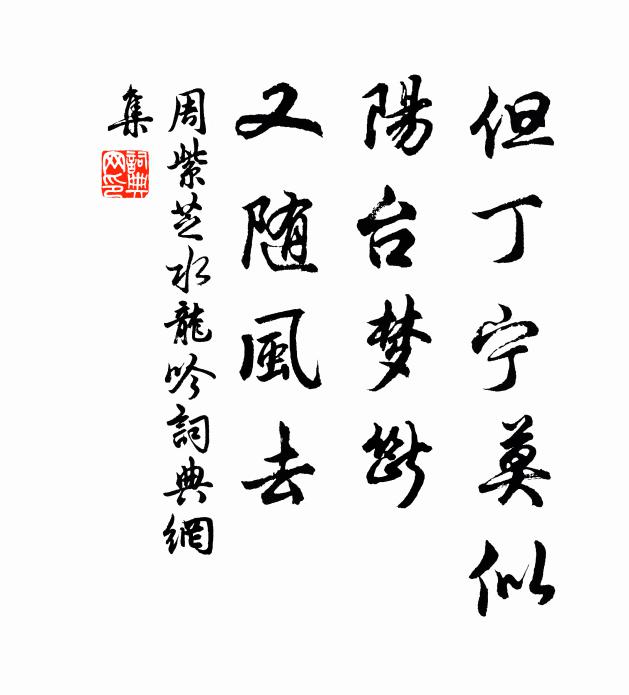 但丁宁莫似
陽台梦斷
又随風去
周紫芝水龍吟詞典網
集
詞典
网印